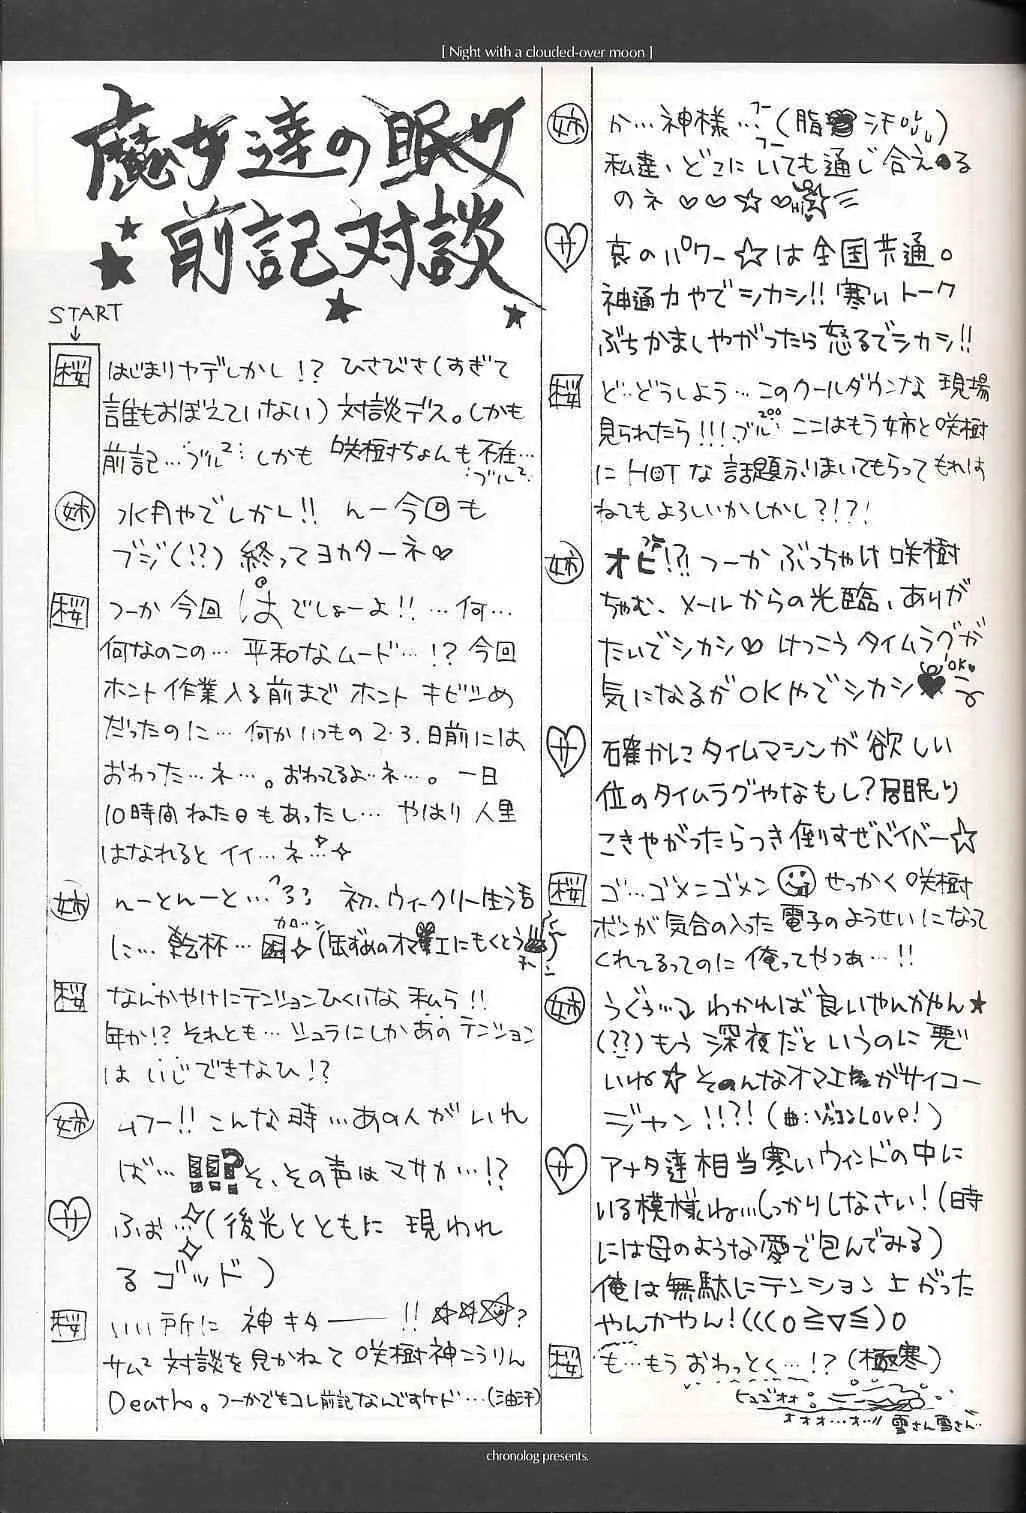 [ Night with a clouded-over moon ]
魔女達の眠サ
前記対談
START
桜 はじまりヤデしかし!? ひさびさ(すぎて
誰もおぼえていない) 対談デス。しかも
前記…ブル²… しかも 咲樹ちょんも不在…
ブル²
姉 水月やでしかし!! んー今回も
ブジ(!?) 終ってヨカターネ♡
桜 つーか今回はでしょーよ!! …何…
何なのこの… 平和なムード…!? 今回
ホント作業入る前まで ホント キビシめ
だったのに… 何かいつもの2・3日前には
おわった…ネ…。おわってるよ…ネ…。一日
10時間ねた日もあったし… やはり人里
はなれるとイイ…ネ…
姉 んーとんーと… 初、ウィークリー生活
に… 乾杯…
カローン
桜 なんかやけにテンションひくいな 私ら!!
年か!? それとも… シュラにしかあのテンション
は いじできなひ!?
姉 ムフー!! こんな時…あの人がいれ
ば… !!!? そ、その声はマサカ…!?
サ ふぉ…(後光とともに 現われ
るゴッド)
桜 いい所に 神キター――!! ☆☆☆?
サム² 対談を見かねて咲樹神こうりん
Death。つーかでもコレ前記なんですケド…(油汗)
姉 か…神様…?(脂 汗)
フー
フー
私達、どこにいても通じ合える
のネ ♡♡☆♡
サ 哀のパワー☆は全国共通。
神通力やでシカシ!! 寒いトーク
ぶちかましやがったら怒るでシカシ!!
桜 ど…どうしよう… このクールダウンな 現場
見られたら!!! ブル… ここはもう姉と咲樹
に HOT な 話題ふりまいてもらってもれは
ねてもよろしいかしかし?!?!
姉 オビ!?! つーか ぶっちゃけ 咲樹
ちゃむ、メールからの光臨、ありが
たいでシカシ♡ けっこう タイムラグが
気になるがOKやでシカシ♥
OK
サ 確かにタイムマシンが欲しい
位のタイムラグやなもし? 居眠り
こきやがったらつき倒すぜベイベー☆
桜 ゴ…ゴメニゴメン せっかく咲樹
ポンが 気合の入った 電子のようせいになって
くれてるってのに 俺ってやつぁ…!!
姉 うぐぅ… わかれば良いやんかやん★
(??) もう 深夜だというのに悪
いね☆ そのんなオマエがサイコー
ジャン!!?! (曲:ゾッコンLove!)
サ アナタ達相当寒いウィンドの中に
いる模様ね…しっかりしなさい!(時
には母のような愛で包んでみる)
俺は無駄にテンション上がった
やんかやん!(((o≧▽≦)o
桜 も…もうおわっとく…!? (極寒)
ヒュゴオオ
オオオ…オ…!! 雪さん雪さん…
chronolog presents.